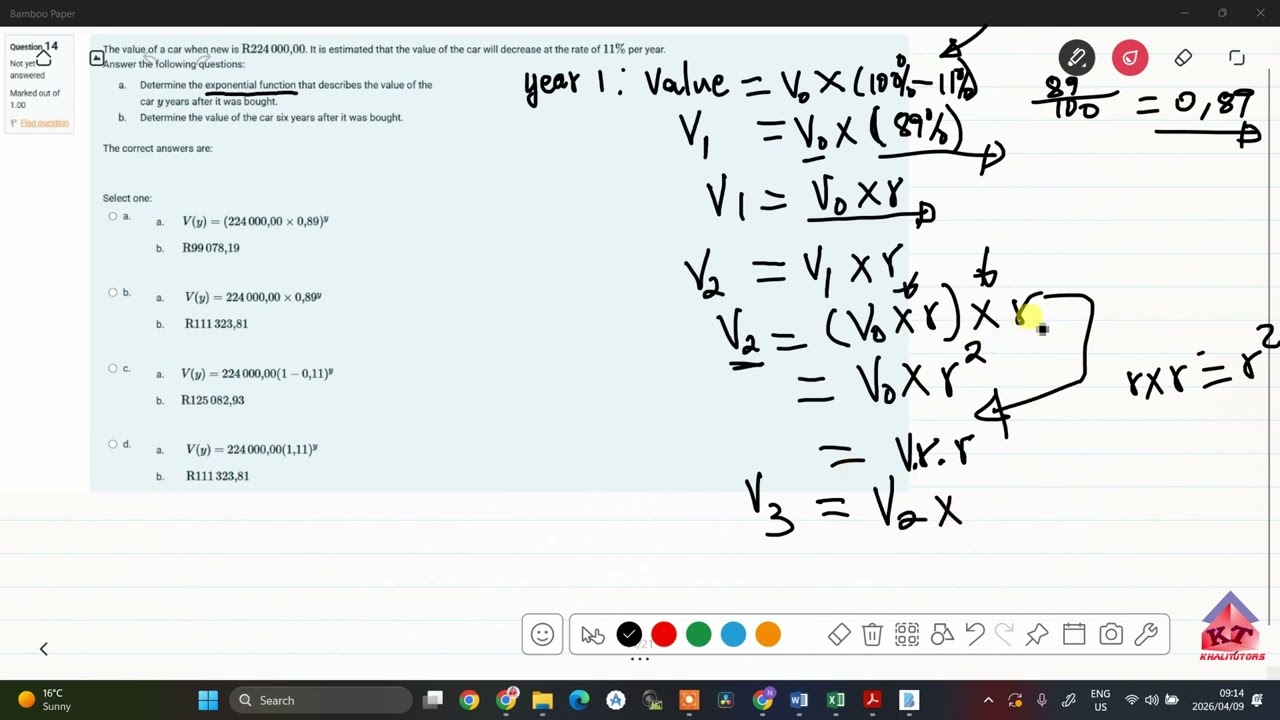 Bamboo Paper
Question 14
Not yet
answered
Marked out of
1.00
Flag question
The value of a car when new is R224 000,00. It is estimated that the value of the car will decrease at the rate of 11% per year.
Answer the following questions:
a. Determine the exponential function that describes the value of the
car y years after it was bought.
b. Determine the value of the car six years after it was bought.
The correct answers are:
Select one:
a. a. V(y) = (224 000,00 × 0,89)^y
b. R99 078,19
b. a. V(y) = 224 000,00 × 0,89^y
b. R111 323,81
c. a. V(y) = 224 000,00(1 − 0,11)^y
b. R125 082,93
d. a. V(y) = 224 000,00(1,11)^y
b. R111 323,81
year 1 : Value = V₀ × (100% - 11%)
V₁ = V₀ × (89%)
V₁ = V₀ × r
V₂ = V₁ × r
V₂ = (V₀ × r) × r
= V₀ × r²
= V.r.r
V₃ = V₂ ×
89/100 = 0,89
r×r = r²
/21
KT
KHALITUTORS
16°C
Sunny
Search
ENG
US
09:14
2026/04/09